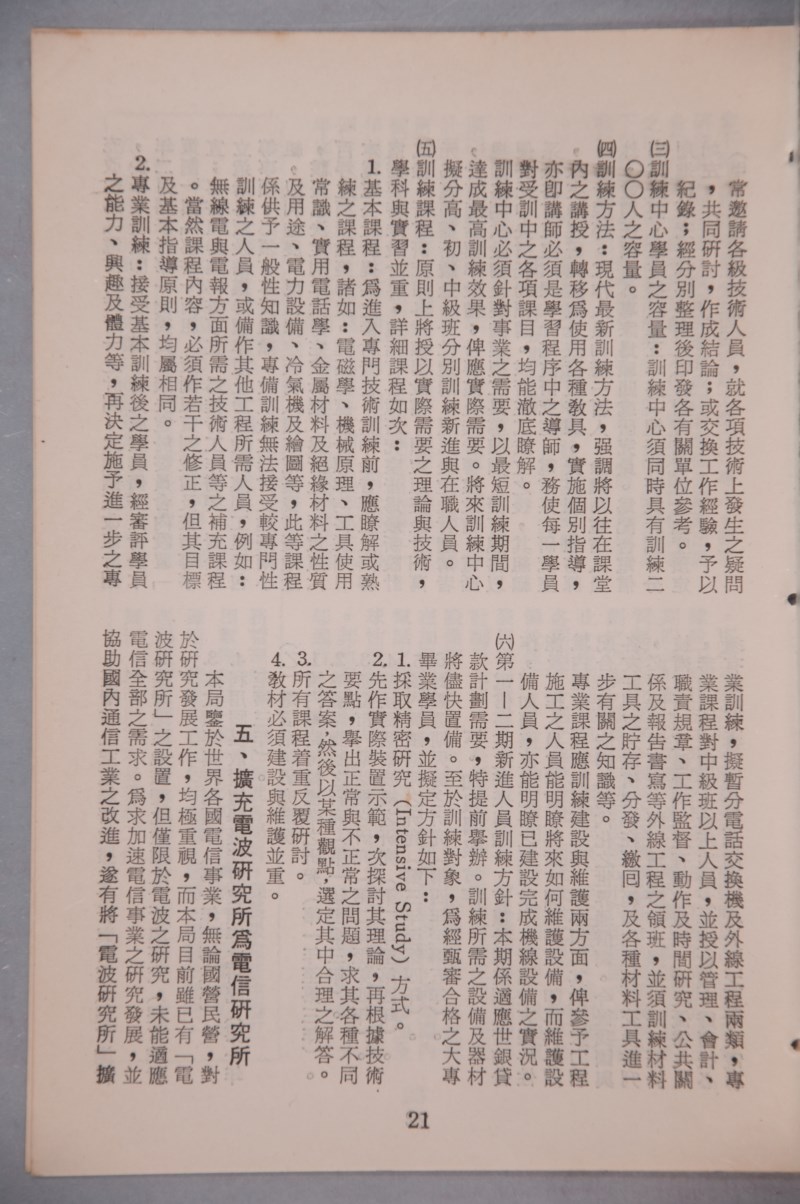 常邀請各級技術人員，就各項技術上發生之疑問
，共同研討，作成結論；或交換工作經驗，予以
紀錄；經分別整理後印發各有關單位參考。
㈢訓練中心學員之容量：訓練中心須同時具有訓練二
〇〇人之容量。
㈣訓練方法：現代最新訓練方法，强調將以往在課堂
內之講授，轉移爲使用各種敎具，實施個別指導，
亦卽講師必須是學習程序中之導師，務使每一學員
對受訓中之各項課目，均能澈底瞭解。
訓練中心必須針對事業之需要，以最短訓練期間，
達成最高訓練效果，俾應實際需要。將來訓練中心
擬分高、初、中級班分別訓練新進與在職人員。
㈤訓練課程：原則上將授以實際需要之理論與技術，
學科與實習並重，詳細課程如次：
1.基本課程：爲進入專門技術訓練前，應瞭解或熟
練之課程，諸如：電磁學、機械原理、工具使用
常識、實用電話學、金屬材料及絕緣材料之性質
及用途、電力設備、冷氣機及繪圖等，此等課程
係供予一般性知識，專備訓練無法接受較專門性
訓練之人員，或備作其他工程所需人員，例如：
無線電與電報方面所需之技術人員等之補充課程
。當然課程內容，必須作若干之修正，但其目標
及基本指導原則，均屬相同。
2.專業訓練：接受基本訓練後之學員，經審評學員
之能力、興趣及體力等，再決定施予進一步之專
業訓練，擬暫分電話交換機及外線工程兩類，專
業課程對中級班以上人員，並授以管理、會計、
職責規章、工作監督、動作及時間研究、公共關
係及報告書寫等外線工程之領班，並須訓練材料
工具之貯存、分發、繳囘，及各種材料工具進一
步有關之知識等。
專業課程應訓練建設與維護兩方面，俾參予工程
施工之人員能明瞭將來如何維護設備，而維護設
備人員，亦能明瞭已建設完成機線設備之實況。
㈥第一—二期新進人員訓練方針：本期係適應世銀貸
款計劃需要，特提前舉辦。訓練所需之設備及器材
將儘快置備。至於訓練對象，爲經甄審合格之大專
畢業學員，並擬定方針如下：
1.採取精密研究（Intensive Study）方式。
2.先作實際裝置示範，次探討其理論，再根據技術
要點，擧出正常與不正常之問題，求其各種不同
之答案，然後以某種觀點，選定其中合理之解答。
3.所有課程着重反覆研討。
4.敎材必須建設與維護並重。
五、擴充電波硏究所爲電信硏究所
本局鑒於世界各國電信事業，無論國營民營，對
於硏究發展工作，均極重視，而本局目前雖已有「電
波硏究所」之設置，但僅限於電波之硏究，未能適應
電信全部之需求。爲求加速電信事業之硏究發展，並
協助國內通信工業之改進，遂有將「電波硏究所」擴
21